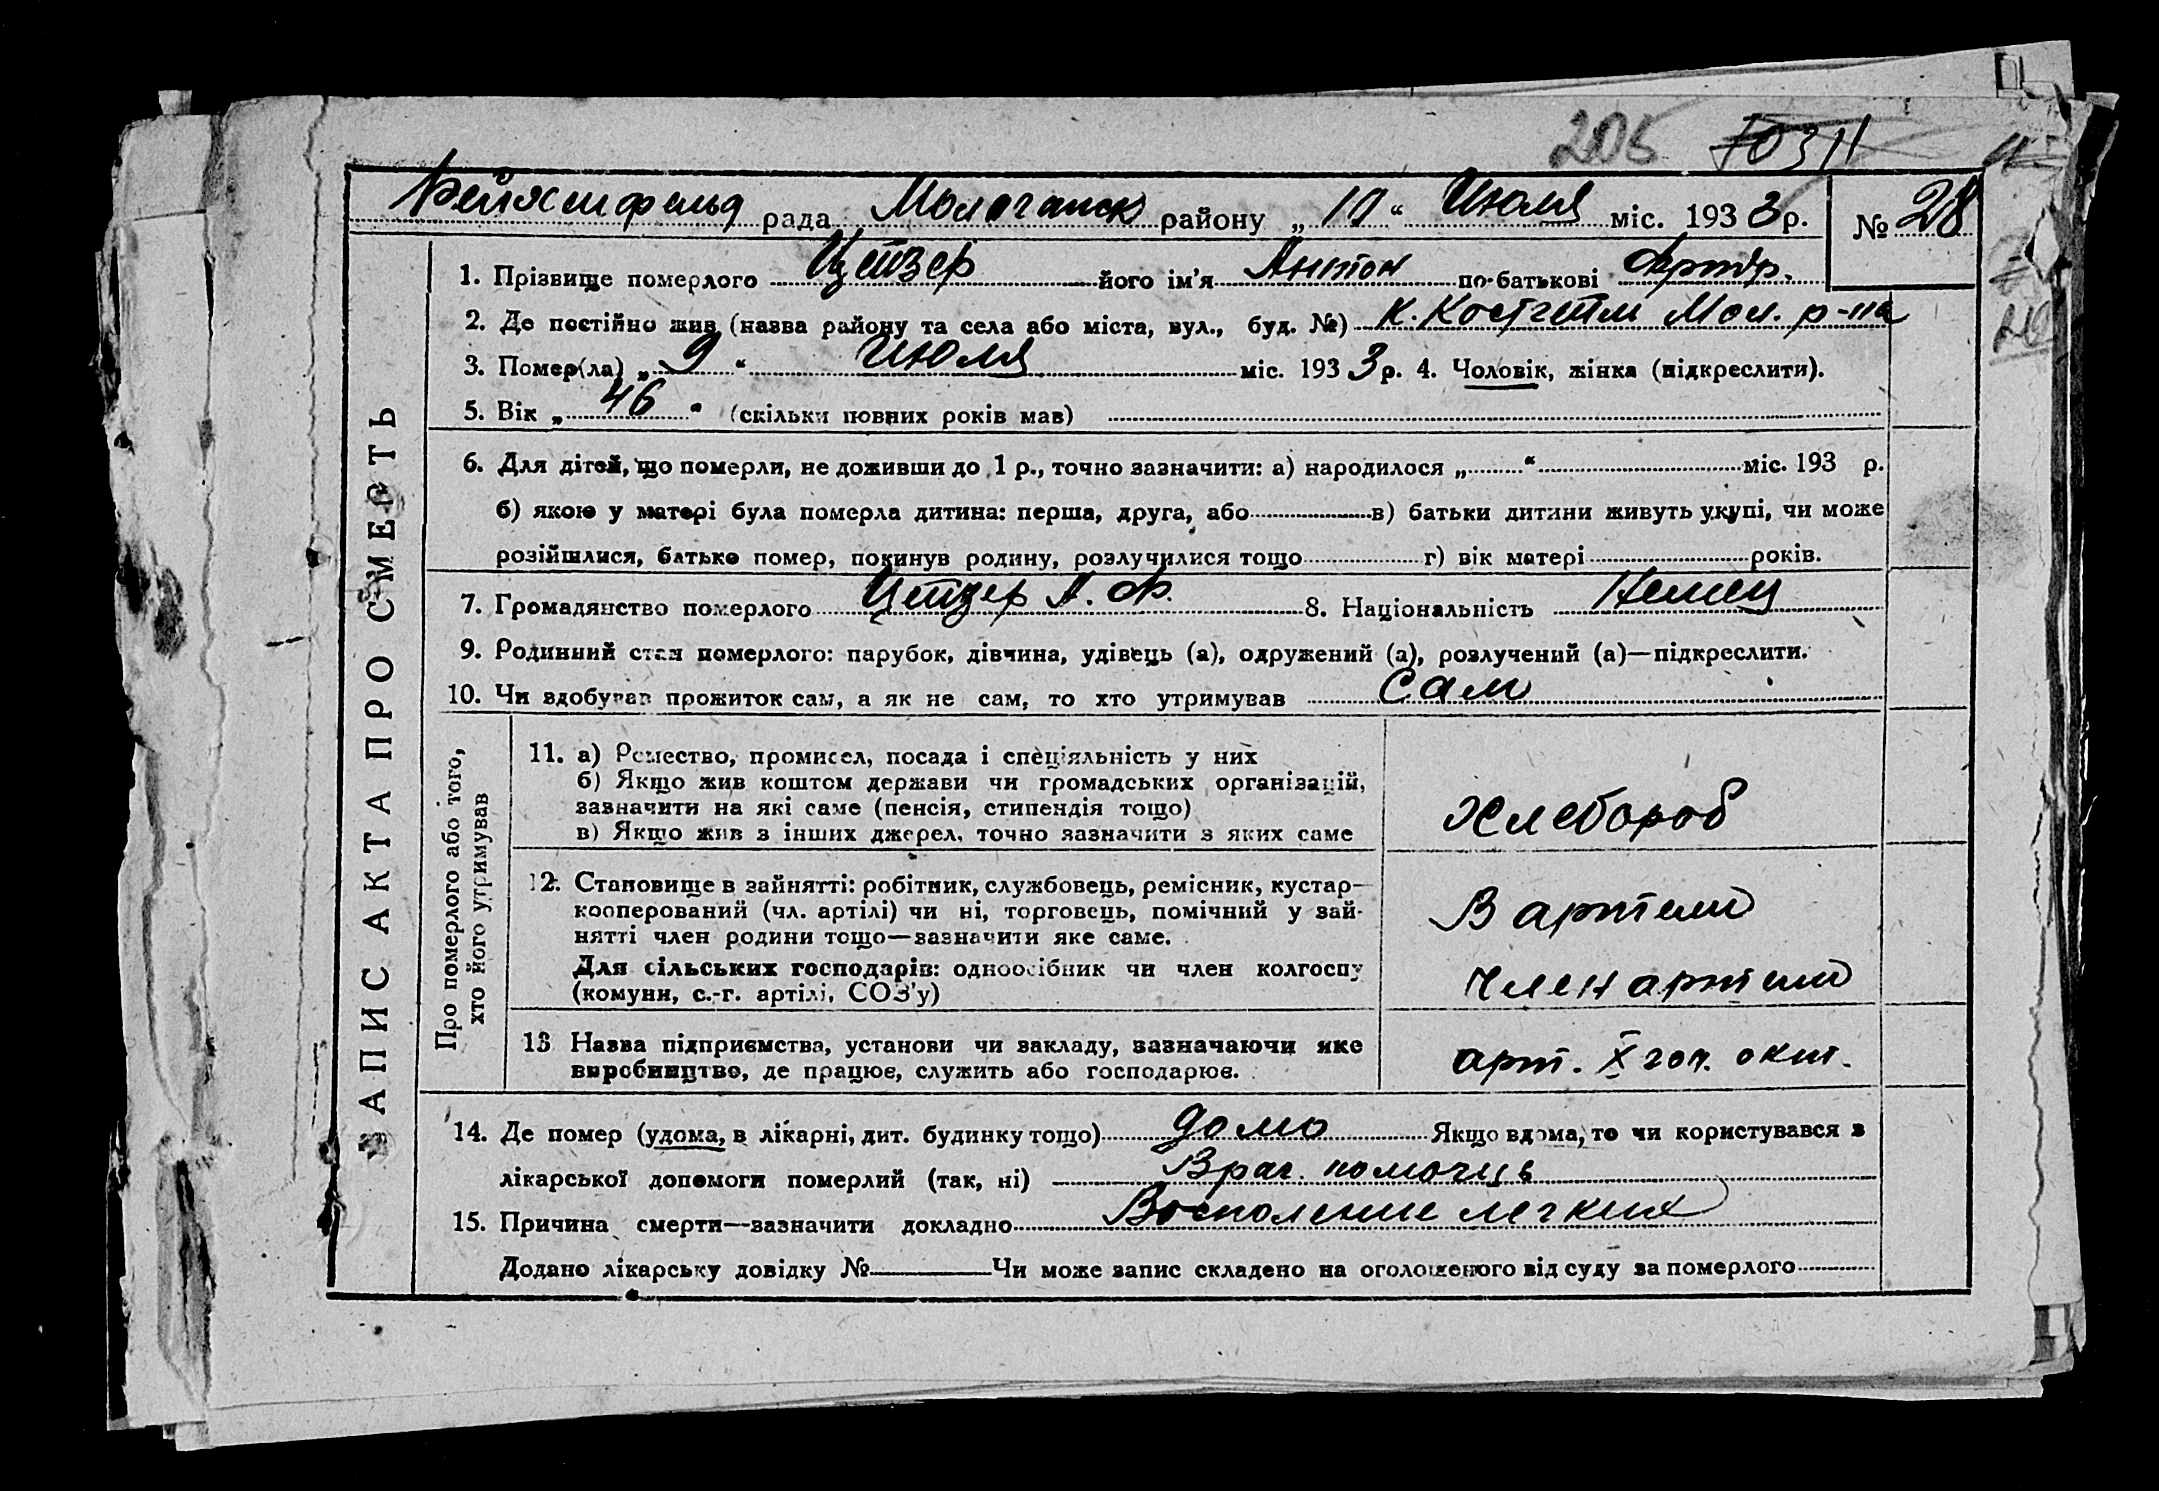 205 70311
Рейхсфельд рада Молочанск району „10“ Июля міс. 1933 р. № 28
ЗАПИС АКТА ПРО СМЕРТЬ
1. Прізвище померлого Цейзер його ім'я Антон по-батькові
2. Де постійно жив (назва району та села або міста, вул., буд. №) к. Костгейм Мол. р-на
3. Помер(ла) „9“ Июля міс. 1933 р. 4. Чоловік, жінка (підкреслити).
5. Вік „46“ (скільки повних років мав)
6. Для дітей, що померли, не доживши до 1 р., точно зазначити: а) народилося „ “ міс. 193 р.
б) якою у матері була померла дитина: перша, друга, або в) батьки дитини живуть укупі, чи може
розійшлися, батько помер, покинув родину, розлучилися тощо г) вік матері років.
7. Громадянство померлого Цейзер А. Ф. 8. Національність Немец
9. Родинний стан померлого: парубок, дівчина, удівець (а), одружений (а), розлучений (а)—підкреслити.
10. Чи здобував прожиток сам, а як не сам, то хто утримував Сам
Про померлого або того,
хто його утримував
11. а) Ремество, промисел, посада і спеціяльність у них
б) Якщо жив коштом держави чи громадських організацій,
зазначити на які саме (пенсія, стипендія тощо)
в) Якщо жив з інших джерел, точно зазначити з яких саме
Хлебороб
12. Становище в зайнятті: робітник, службовець, ремісник, кустар—
кооперований (чл. артілі) чи ні, торговець, помічний у зай-
нятті член родини тощо—зазначити яке саме.
В артели
Для сільських господарів: одноосібник чи член колгоспу
(комуни, с.-г. артілі, СОЗ'у)
Член артели
13 Назва підприємства, установи чи закладу, зазначаючи яке
виробництво, де працює, служить або господарює.
арт. X год. окт.
14. Де помер (удома, в лікарні, дит. будинку тощо) дома Якщо вдома, то чи користувався з
лікарської допомоги померлий (так, ні) Врач. помощь
15. Причина смерти—зазначити докладно Воспаление легких
Додано лікарську довідку № Чи може запис складено на оголошеного від суду за померлого